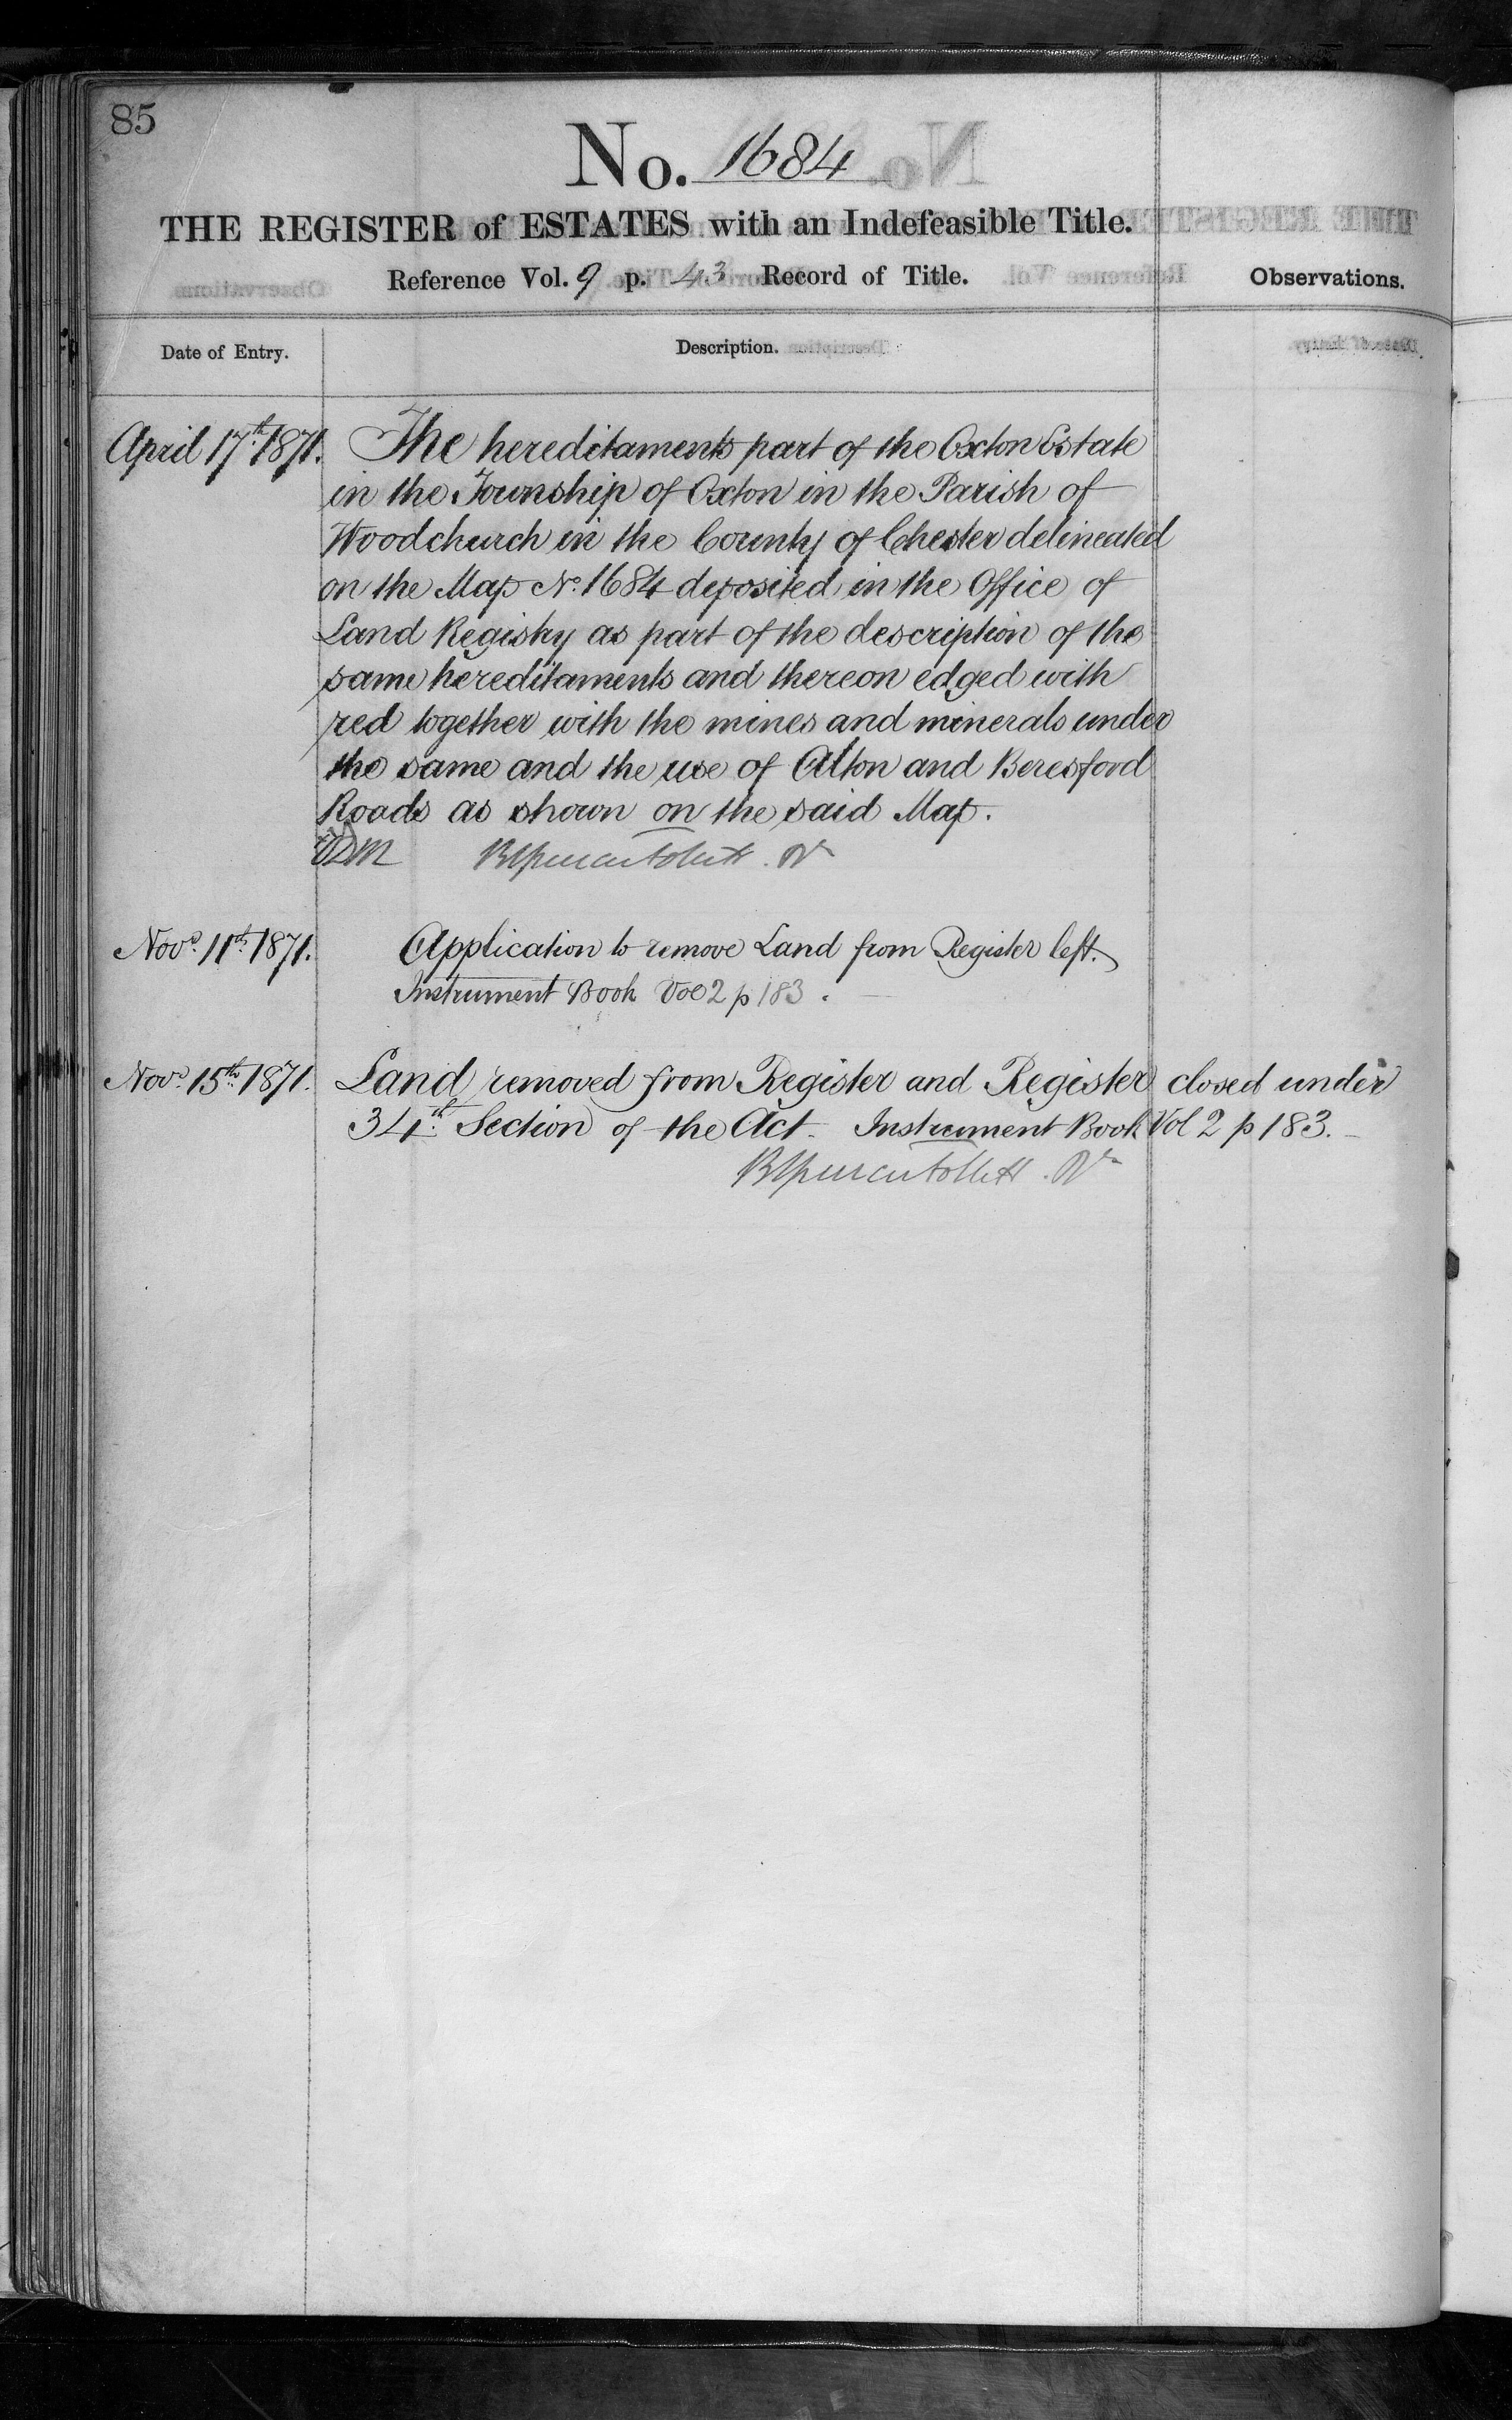 85
No. 1684
THE REGISTER of ESTATES with an Indefeasible Title.
Reference Vol. 9 p. 43 Record of Title.
Observations.
Date of Entry.
Description.
April 17th 1871. The hereditaments part of the Oxton Estate
in the Township of Oxton in the Parish of
Woodchurch in the County of Chester delineated
on the Map No. 1684 deposited in the Office of
Land Registry as part of the description of the
same hereditaments and thereon edged with
red together with the mines and minerals under
the same and the use of Alton and Beresford
Roads as shown on the said Map.
Novr. 11th 1871. Application to remove Land from Register left.
Instrument Book Vol 2 p 183.
Novr. 15th 1871. Land removed from Register and Register closed under
34th Section of the Act. Instrument Book Vol 2 p 183.